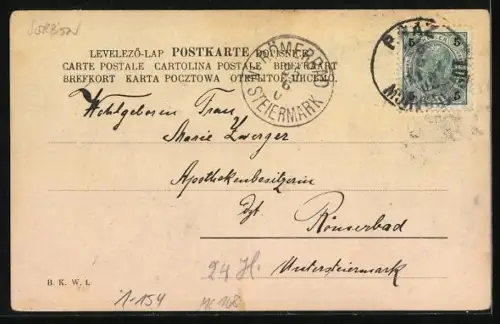 LEVELEZŐ-LAP POSTKARTE DOPISNICE
CARTE POSTALE CARTOLINA POSTALE BREFKORT
BREFKORT KARTA POCZTOWA ОТКРЫТОЕ ПИСЬМО
RÖMERBAD
STEIERMARK
5 5
Wohlgeboren Frau
Marie Zwerger
Apothekenbesitzerin
Römerbad
Untersteiermark
24 H.
B. K. W. I.
1-154